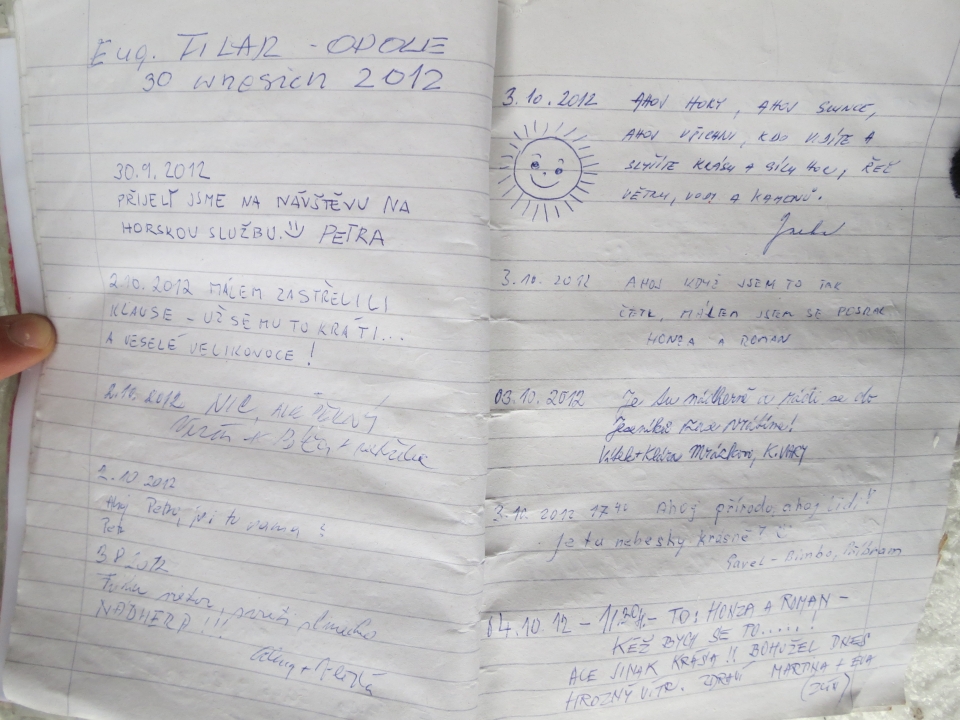 Eug. TILAR - OPOLE
30 wrzesień 2012
30.9.2012
PŘIJELI JSME NA NÁVŠTĚVU NA
HORSKOU SLUŽBU. PETRA
2.10.2012 MÁLEM ZASTŘELILI
KLAUSE - UŽ SE MU TO KRÁTÍ...
A VESELÉ VELIKONOCE!
2.10.2012 NIC, ALE PĚKNÝ
2.10.2012
Ahoj Petro, jsi tu sama?
Petr
3 2012
NÁDHERA!!!
3.10.2012 AHOJ HORY, AHOJ SLUNCE,
AHOJ VŠICHNI, KDO VIDÍTE A
SLYŠÍTE KRÁSU A SÍLU HOR, ŘEČ
VĚTRU, VODY A KAMENŮ.
3.10.2012 AHOJ KDYŽ JSEM TO TAK
ČETL, MÁLEM JSEM SE POSRAL
HONZA A ROMAN
03.10.2012 Je tu nádherně a rádi se do
Jeseníků zase vrátíme!
Mráčkovi, K. VARY
3.10.2012 17 Ahoj přírodo, ahoj lidi!
Je tu nebesky krásně!
Pavel - Bimbo, Příbram
04.10.12 - - TO: HONZA A ROMAN -
KÉŽ BYCH SE TO.....!
ALE JINAK KRÁSA!! BOHUŽEL DNES
HROZNÝ VÍTR. ZDRAVÍ MARTINA + EVA